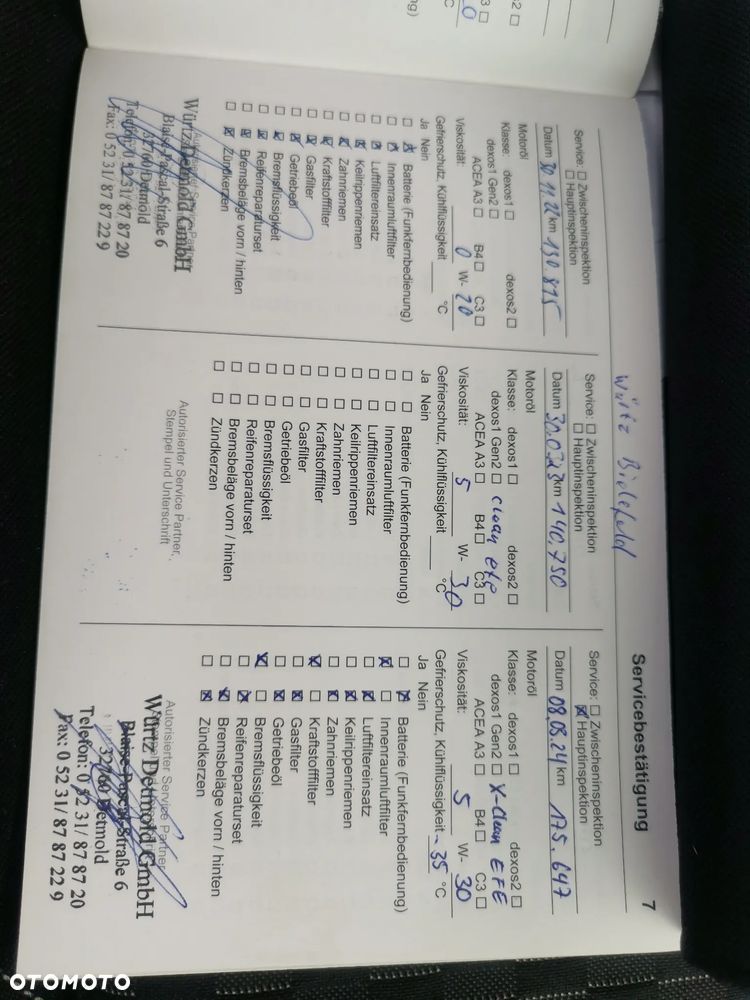 Servicebestätigung 7
Service: Zwischeninspektion
Hauptinspektion
Datum 30.11.22 km 130.815
Motoröl
Klasse: dexos1 dexos2
dexos1 Gen2
ACEA A3 B4 C3
Viskosität: 0 W- 20
Gefrierschutz, Kühlflüssigkeit °C
Ja Nein
Batterie (Funkfernbedienung)
Innenraumluftfilter
Luftfiltereinsatz
Keilrippenriemen
Zahnriemen
Kraftstofffilter
Gasfilter
Getriebeöl
Bremsflüssigkeit
Reifenreparaturset
Bremsbeläge vorn / hinten
Zündkerzen
Autorisierter Service Partner
Würtz Detmold GmbH
Blaise-Pascal-Straße 6
32760 Detmold
Telefon: 0 52 31/ 87 87 20
Fax: 0 52 31/ 87 87 22 9
Würtz Bielefeld
Service: Zwischeninspektion
Hauptinspektion
Datum km 140.750
Motoröl
Klasse: dexos1 dexos2
dexos1 Gen2 clean efe
ACEA A3 B4 C3
Viskosität: 5 W- 30
Gefrierschutz, Kühlflüssigkeit °C
Ja Nein
Batterie (Funkfernbedienung)
Innenraumluftfilter
Luftfiltereinsatz
Keilrippenriemen
Zahnriemen
Kraftstofffilter
Gasfilter
Getriebeöl
Bremsflüssigkeit
Reifenreparaturset
Bremsbeläge vorn / hinten
Zündkerzen
Autorisierter Service Partner,
Stempel und Unterschrift
Service: Zwischeninspektion
Hauptinspektion
Datum 08.08.24 km 175.647
Motoröl
Klasse: dexos1 dexos2
dexos1 Gen2 X-Clean EFE
ACEA A3 B4 C3
Viskosität: 5 W- 30
Gefrierschutz, Kühlflüssigkeit -35 °C
Ja Nein
Batterie (Funkfernbedienung)
Innenraumluftfilter
Luftfiltereinsatz
Keilrippenriemen
Zahnriemen
Kraftstofffilter
Gasfilter
Getriebeöl
Bremsflüssigkeit
Reifenreparaturset
Bremsbeläge vorn / hinten
Zündkerzen
Autorisierter Service Partner
Würtz Detmold GmbH
Blaise-Pascal-Straße 6
32760 Detmold
Telefon: 0 52 31/ 87 87 20
Fax: 0 52 31/ 87 87 22 9
OTOMOTO